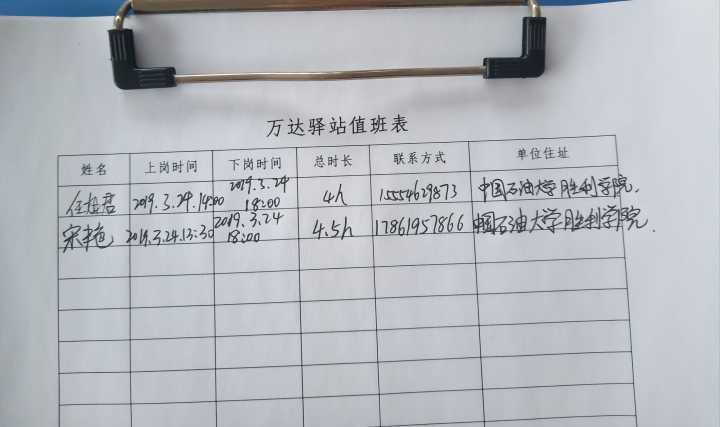 万达驿站值班表
姓名 上岗时间 下岗时间 总时长 联系方式 单位住址
任 君 2019.3.24.14:00 2019.3.24 18:00 4h 15554629873 中国石油大学胜利学院.
宋艳 2019.3.24.13:30 2019.3.24 18:00 4.5h 17861957866 中国石油大学胜利学院.